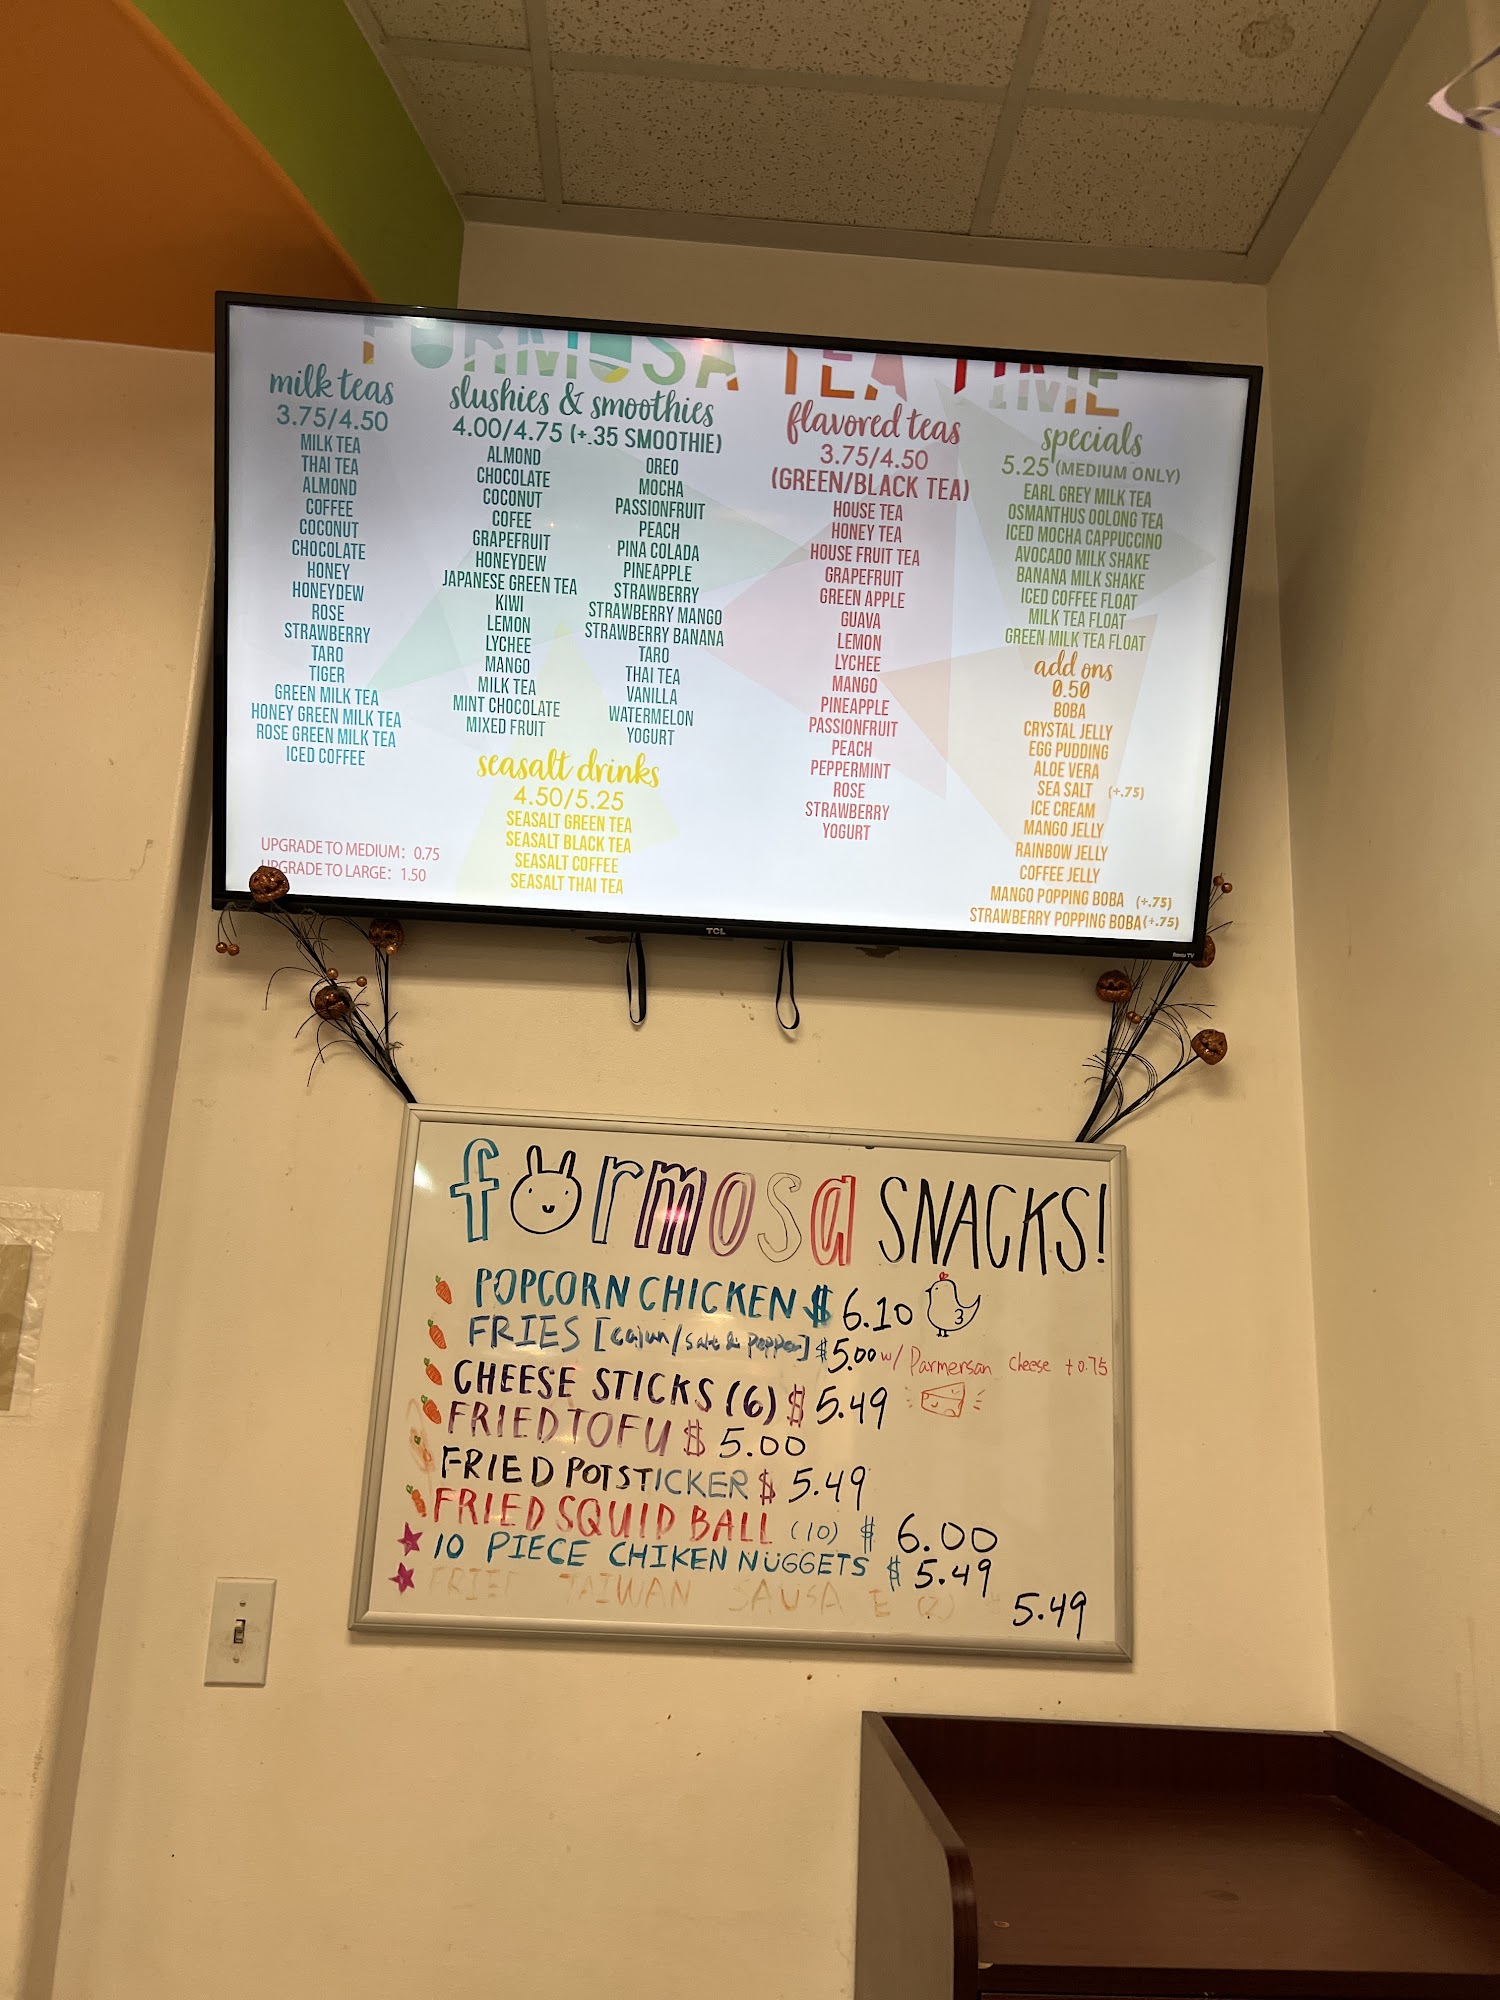 FORMOSA TEA TIME
milk teas
3.75/4.50
MILK TEA
THAI TEA
ALMOND
COFFEE
COCONUT
CHOCOLATE
HONEY
HONEYDEW
ROSE
STRAWBERRY
TARO
TIGER
GREEN MILK TEA
HONEY GREEN MILK TEA
ROSE GREEN MILK TEA
ICED COFFEE
UPGRADE TO MEDIUM: 0.75
UPGRADE TO LARGE: 1.50
slushies & smoothies
4.00/4.75 (+.35 SMOOTHIE)
ALMOND
CHOCOLATE
COCONUT
COFEE
GRAPEFRUIT
HONEYDEW
JAPANESE GREEN TEA
KIWI
LEMON
LYCHEE
MANGO
MILK TEA
MINT CHOCOLATE
MIXED FRUIT
OREO
MOCHA
PASSIONFRUIT
PEACH
PINA COLADA
PINEAPPLE
STRAWBERRY
STRAWBERRY MANGO
STRAWBERRY BANANA
TARO
THAI TEA
VANILLA
WATERMELON
YOGURT
seasalt drinks
4.50/5.25
SEASALT GREEN TEA
SEASALT BLACK TEA
SEASALT COFFEE
SEASALT THAI TEA
flavored teas
3.75/4.50
(GREEN/BLACK TEA)
HOUSE TEA
HONEY TEA
HOUSE FRUIT TEA
GRAPEFRUIT
GREEN APPLE
GUAVA
LEMON
LYCHEE
MANGO
PINEAPPLE
PASSIONFRUIT
PEACH
PEPPERMINT
ROSE
STRAWBERRY
YOGURT
specials
5.25 (MEDIUM ONLY)
EARL GREY MILK TEA
OSMANTHUS OOLONG TEA
ICED MOCHA CAPPUCCINO
AVOCADO MILK SHAKE
BANANA MILK SHAKE
ICED COFFEE FLOAT
MILK TEA FLOAT
GREEN MILK TEA FLOAT
add ons
0.50
BOBA
CRYSTAL JELLY
EGG PUDDING
ALOE VERA
SEA SALT (+.75)
ICE CREAM
MANGO JELLY
RAINBOW JELLY
COFFEE JELLY
MANGO POPPING BOBA (+.75)
STRAWBERRY POPPING BOBA (+.75)
TCL
Roku TV
formosa SNACKS!
POPCORN CHICKEN $ 6.10
FRIES [cajun/salt & pepper] $5.00 w/ Parmersan cheese +0.75
CHEESE STICKS (6) $ 5.49
FRIED TOFU $ 5.00
FRIED POTSTICKER $ 5.49
FRIED SQUID BALL (10) $ 6.00
10 PIECE CHIKEN NUGGETS $ 5.49
FRIED TAIWAN SAUSA E (2) 5.49